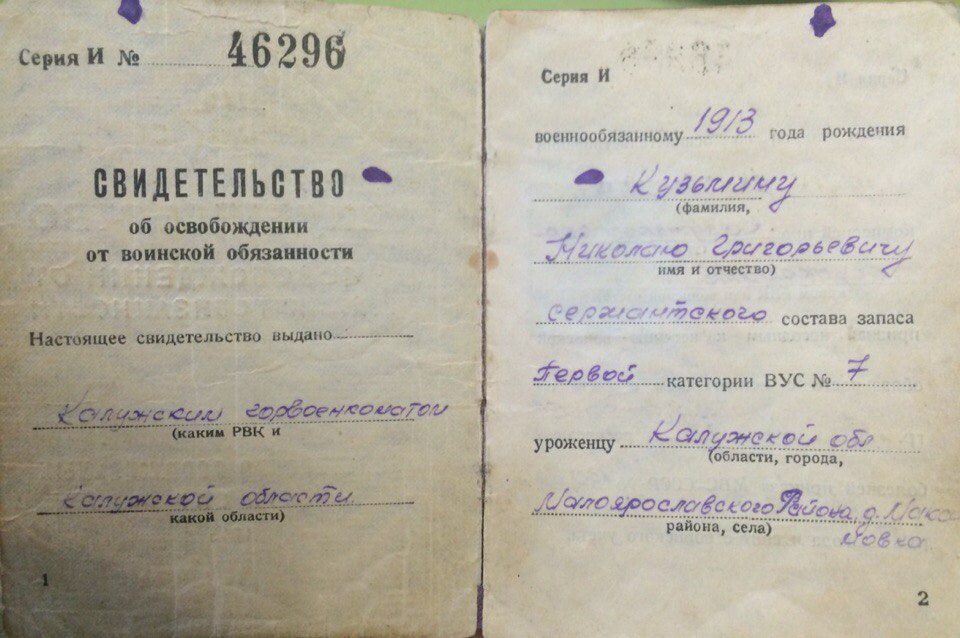 Серия И № 46296
СВИДЕТЕЛЬСТВО
об освобождении
от воинской обязанности
Настоящее свидетельство выдано
Калужским горвоенкоматом
(каким РВК и
Калужской области
какой области)
1
Серия И
военнообязанному 1913 года рождения
Кузьмину
(фамилия,
Николаю Григорьевичу
имя и отчество)
сержантского состава запаса
Первой категории ВУС № 7
уроженцу Калужской обл
(области, города,
Малоярославского Района, д. Мака
района, села)
новка
2